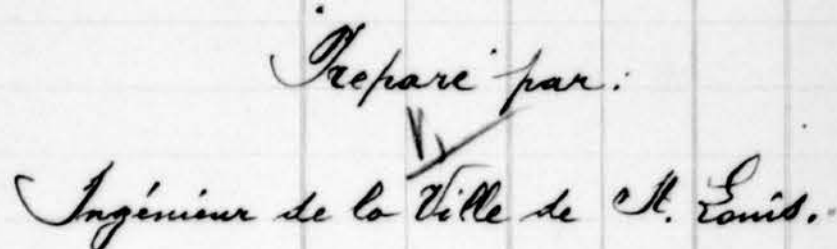 Préparé par:
Ingénieur de la Ville de St. Louis.